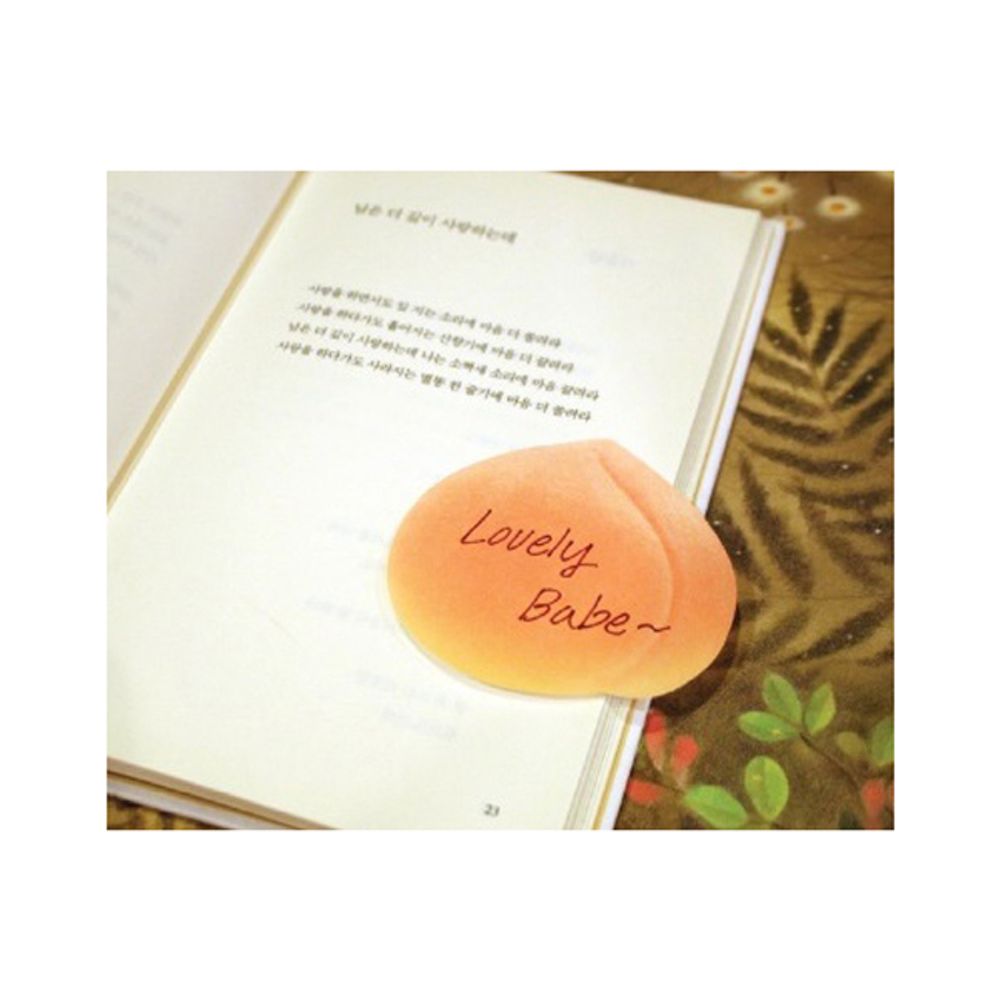 남은 더 깊이 사랑하는데
사랑을 하면서도 잎 지는 소리에 마음 더 쏠려라
사랑을 하다가도 흩어지는 산향기에 마음 더 끌려라
남은 더 깊이 사랑하는데 나는 소쩍새 소리에 마음 끌려라
사랑을 하다가도 사라지는 별똥 한 줄기에 마음 더 쏠려라
Lovely
Babe~
23